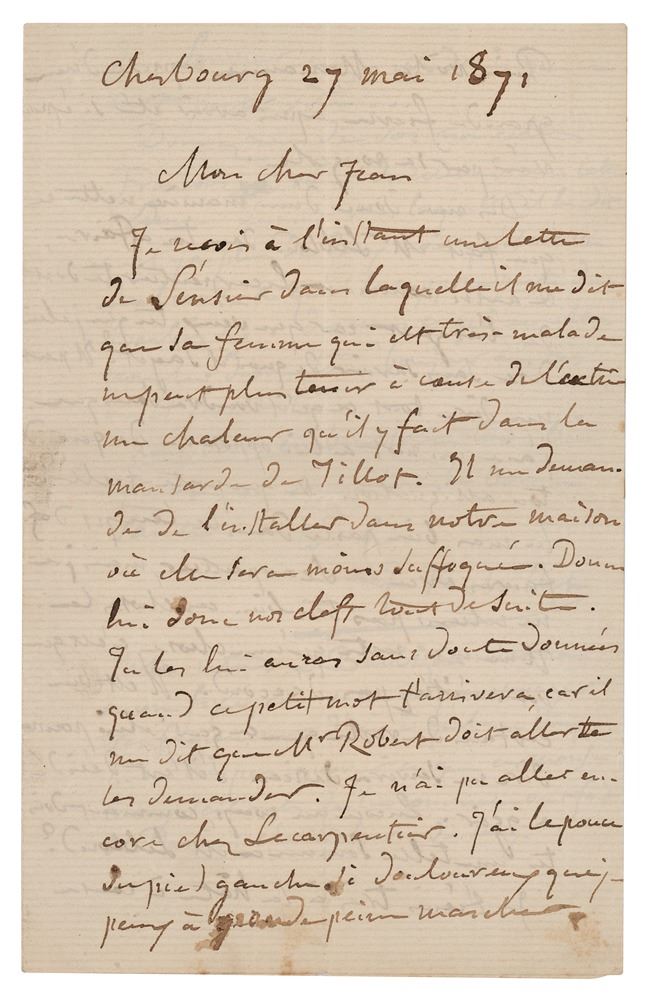 Cherbourg 27 mai 1871
Mon cher Jean
Je reçois à l'instant une lettre
de Sensier dans laquelle il me dit
que sa femme qui est très malade
ne peut plus tenir à cause de l'extrê
me chaleur qu'il y fait dans la
mansarde de Tillot. Il me deman-
de de l'installer dans notre maison
où elle sera moins suffoquée. Donne
lui donc nos clefs tout de suite.
Tu les lui auras sans doute données
quand ce petit mot t'arrivera car il
me dit que Mr Robert doit aller te
les demander. Je n'ai pu aller en-
core chez Lecarpentier. J'ai le pouce
du pied gauche si douloureux que je
peux à grande peine marcher